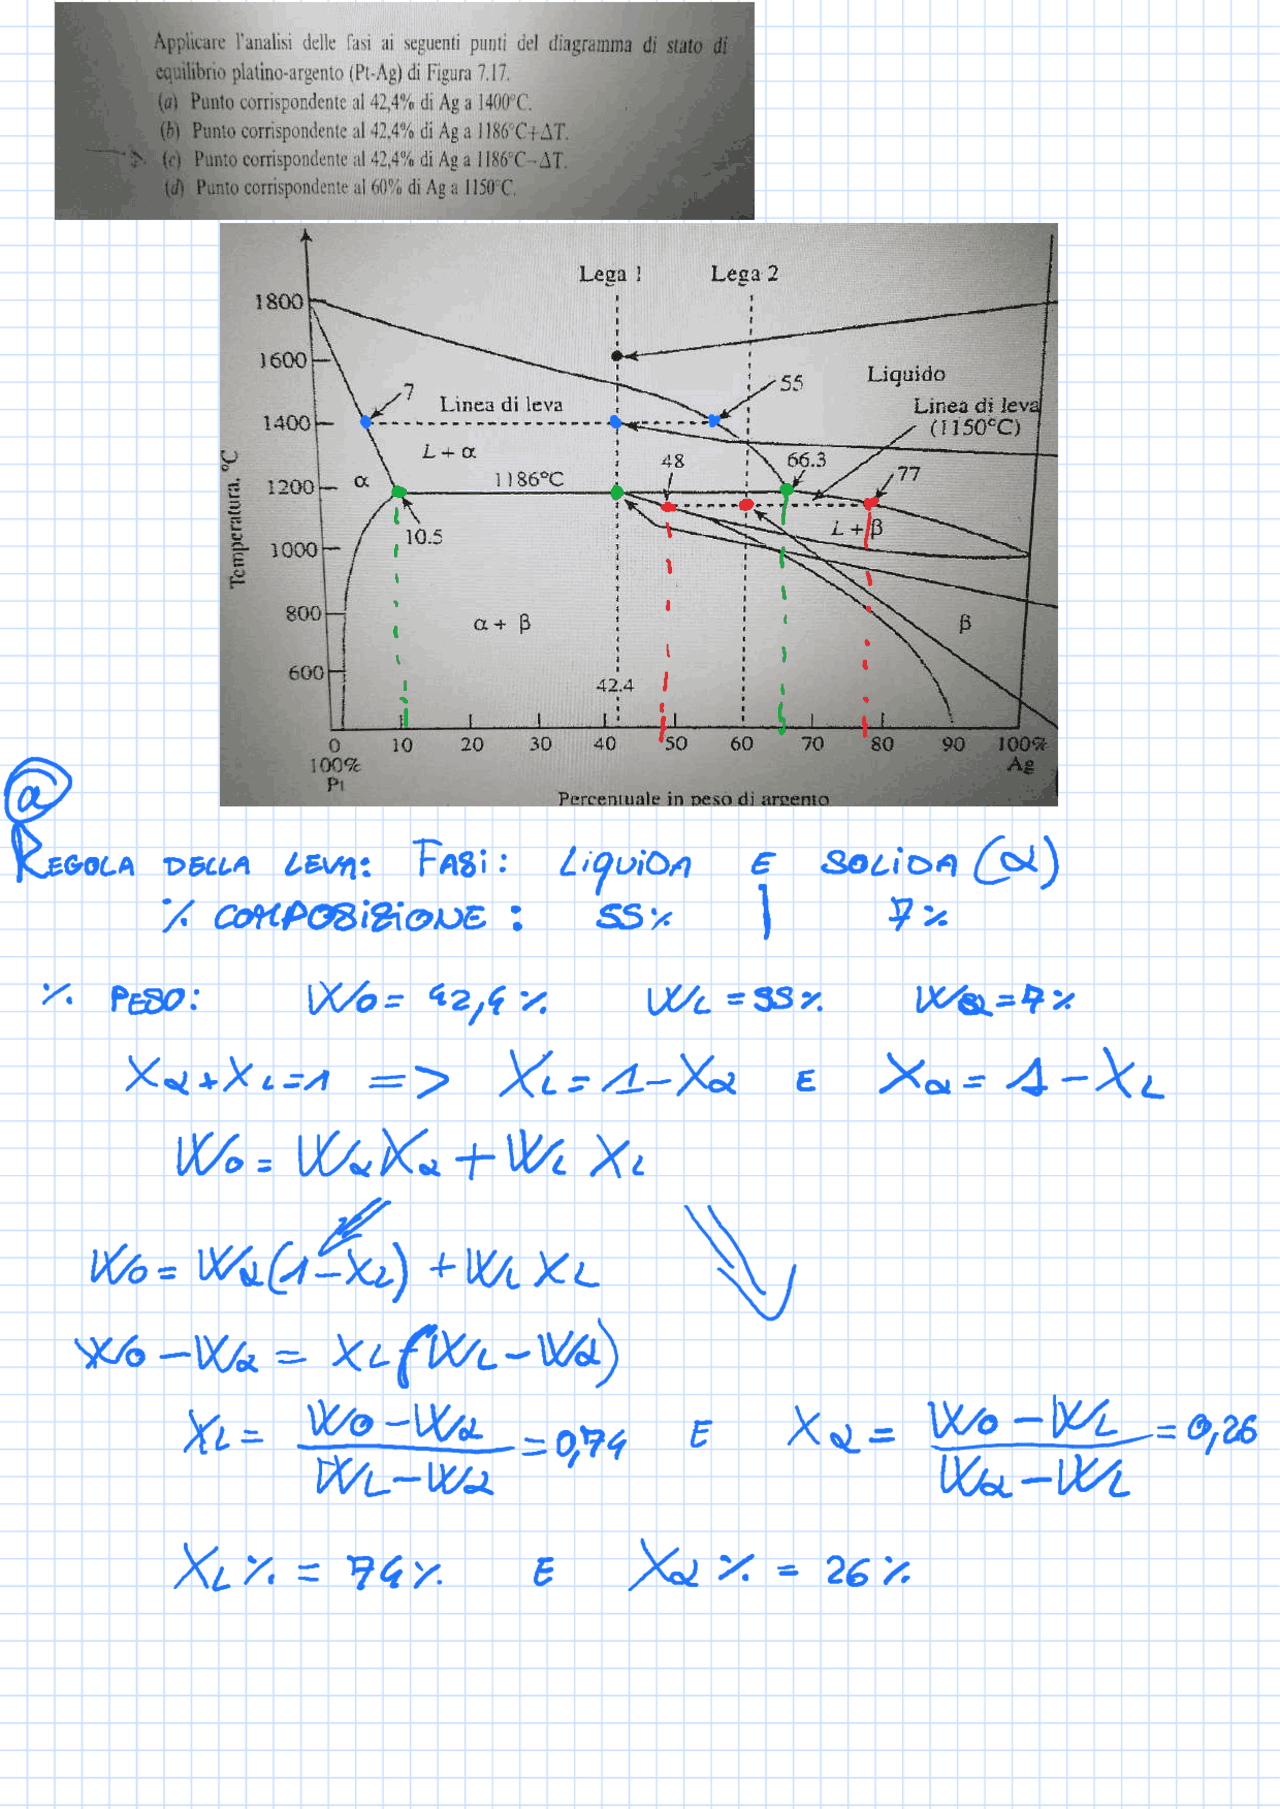 Applicare l'analisi delle fasi ai seguenti punti del diagramma di stato di
equilibrio platino-argento (Pt-Ag) di Figura 7.17.
(a) Punto corrispondente al 42,4% di Ag a 1400°C.
(b) Punto corrispondente al 42,4% di Ag a 1186°C+ΔT.
(c) Punto corrispondente al 42,4% di Ag a 1186°C−ΔT.
(d) Punto corrispondente al 60% di Ag a 1150°C.
Lega 1 Lega 2
1800
1600
Liquido
7 55
Linea di leva Linea di leva
1400 (1150°C)
L + α
48 66.3
1186°C 77
1200 α
L + β
10.5
1000
800
α + β β
600
42.4
Temperatura, °C
0 10 20 30 40 50 60 70 80 90 100%
100% Ag
Pt
Percentuale in peso di argento
a
REGOLA DELLA LEVA: FASI: LIQUIDA E SOLIDA (α)
% COMPOSIZIONE: 55% | 7%
% PESO: W0 = 42,4% WL = 55% Wα = 7%
Xα + XL = 1 => XL = 1 - Xα E Xα = 1 - XL
W0 = WαXα + WL XL
W0 = Wα(1 - XL) + WL XL
W0 - Wα = XL (WL - Wα)
XL = W0 - Wα / WL - Wα = 0,74 E Xα = W0 - WL / Wα - WL = 0,26
XL % = 74% E Xα % = 26%